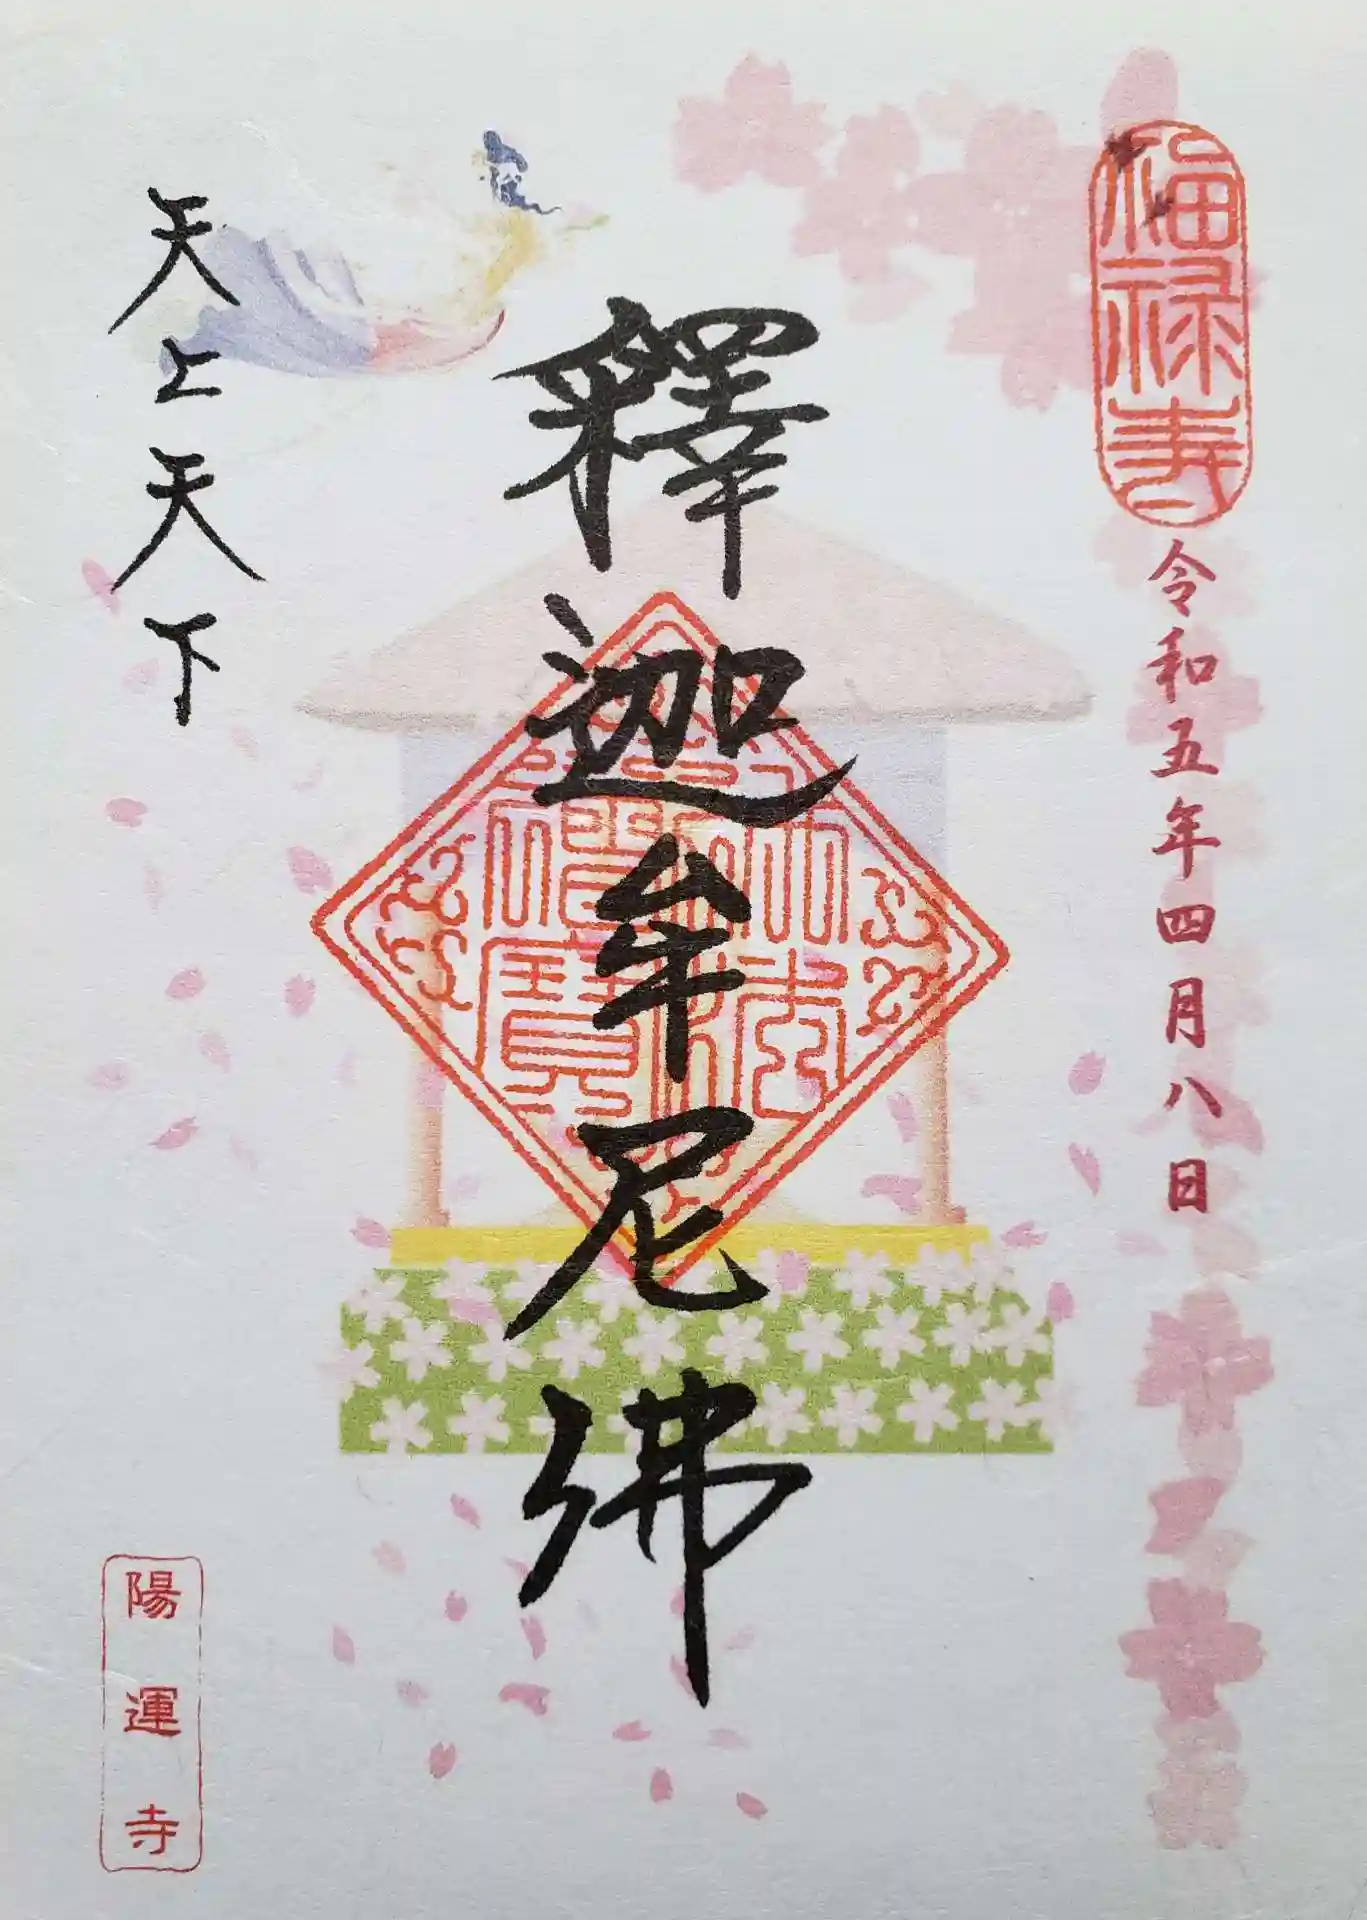 福禄寿
令和五年四月八日
釋迦牟尼佛
天上天下
陽運寺